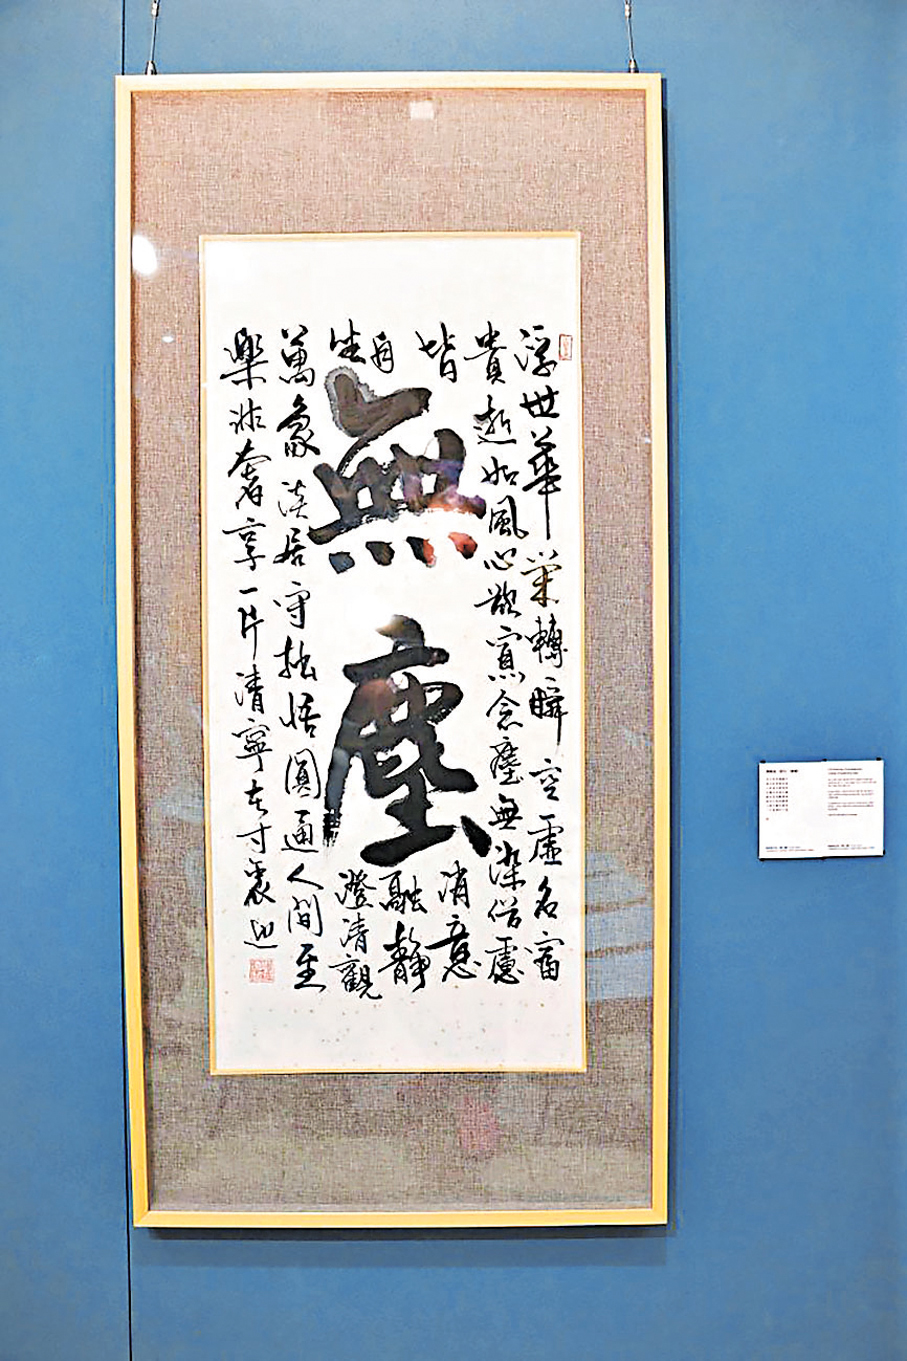 浮世華榮轉瞬空虛名富
貴逝如風心寡念塵無染俗慮
皆消意
自融靜
坐澄清觀
萬象淡居守拙悟圓通人間至
樂非奢享一片清寧在寸衷
無塵